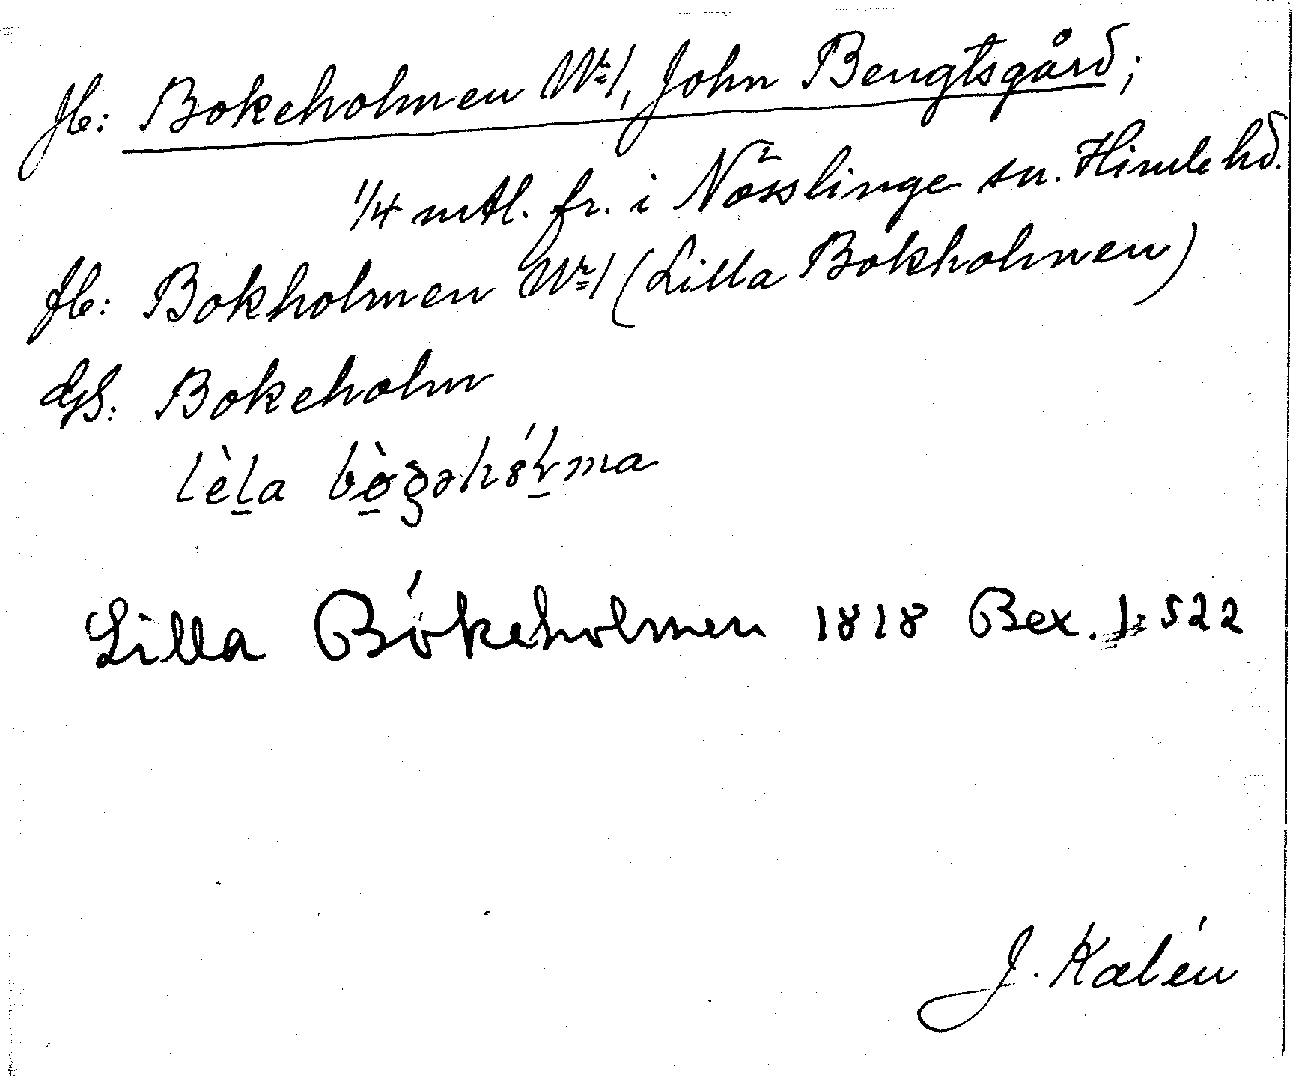 Jb: Bokeholmen Nr 1, John Bengtsgård;
1/4 mtl. fr. i Nösslinge sn. Himle hd.
Jb: Bokholmen Nr 1 (Lilla Bokholmen)
GS: Bokeholm
lèḻa
Lilla Bókeholmen 1818 Bex. 1:522
J. Kalén